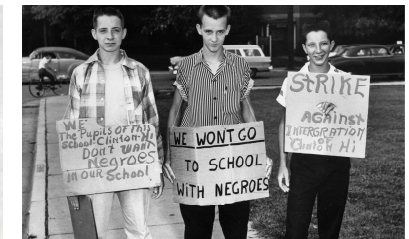 WE
The Pupils of This
School-Clinton-Hi
Don't WANT
Negroes
IN our School
WE WON'T GO
TO SCHOOL
WITH NEGROES
STRIKE
AGAINST
INTERGRATION
OF
Clinton Hi